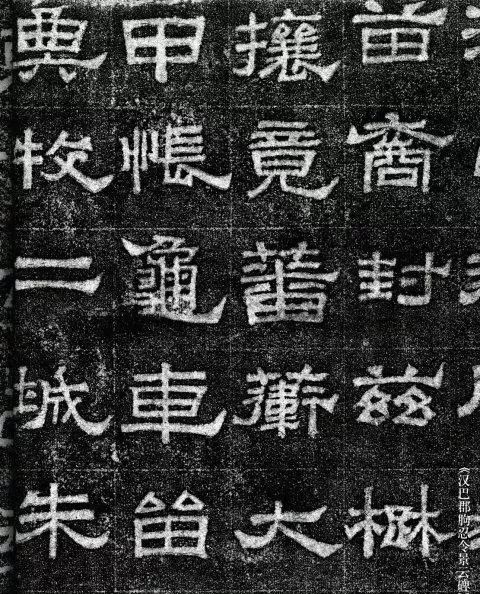 苗裔封兹楙
攘竟蕃衛大
甲帳龜車留
典牧二城朱
《汉巴郡朐忍令景云碑